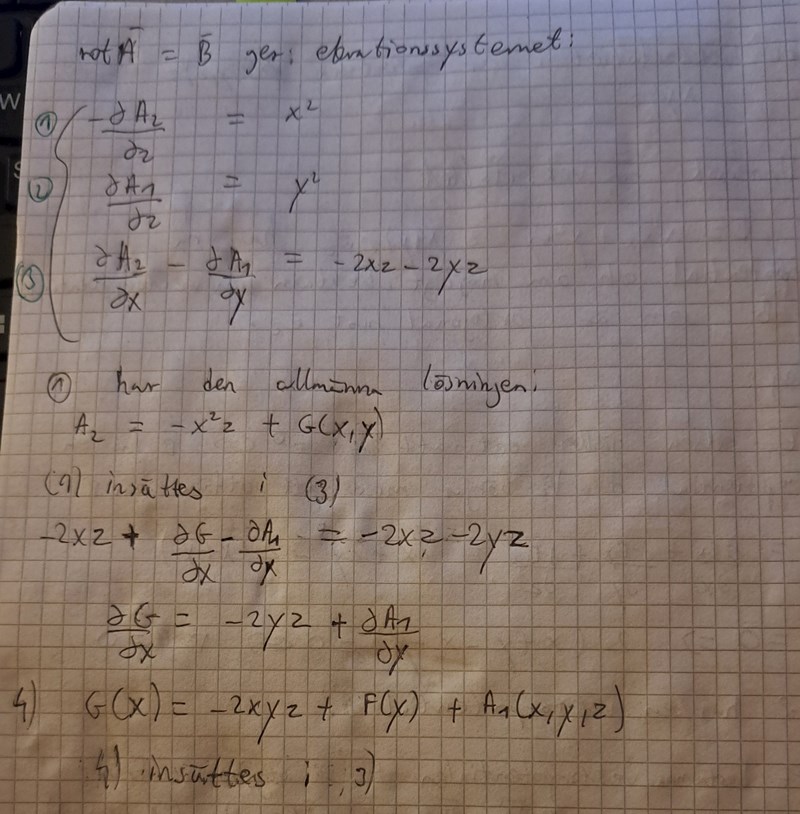 rot Ā = B̄ ger: ekvationssystemet:
① -∂A₂/∂z = x²
② ∂A₁/∂z = y²
③ ∂A₂/∂x - ∂A₁/∂y = -2xz - 2yz
① har den allmänna lösningen:
A₂ = -x²z + G(x,y)
(1) insättes i (3)
-2xz + ∂G/∂x - ∂A₁/∂y = -2xz - 2yz
∂G/∂x = -2yz + ∂A₁/∂y
4) G(x) = -2xyz + F(y) + A₁(x,y,z)
4) insättes i 3)